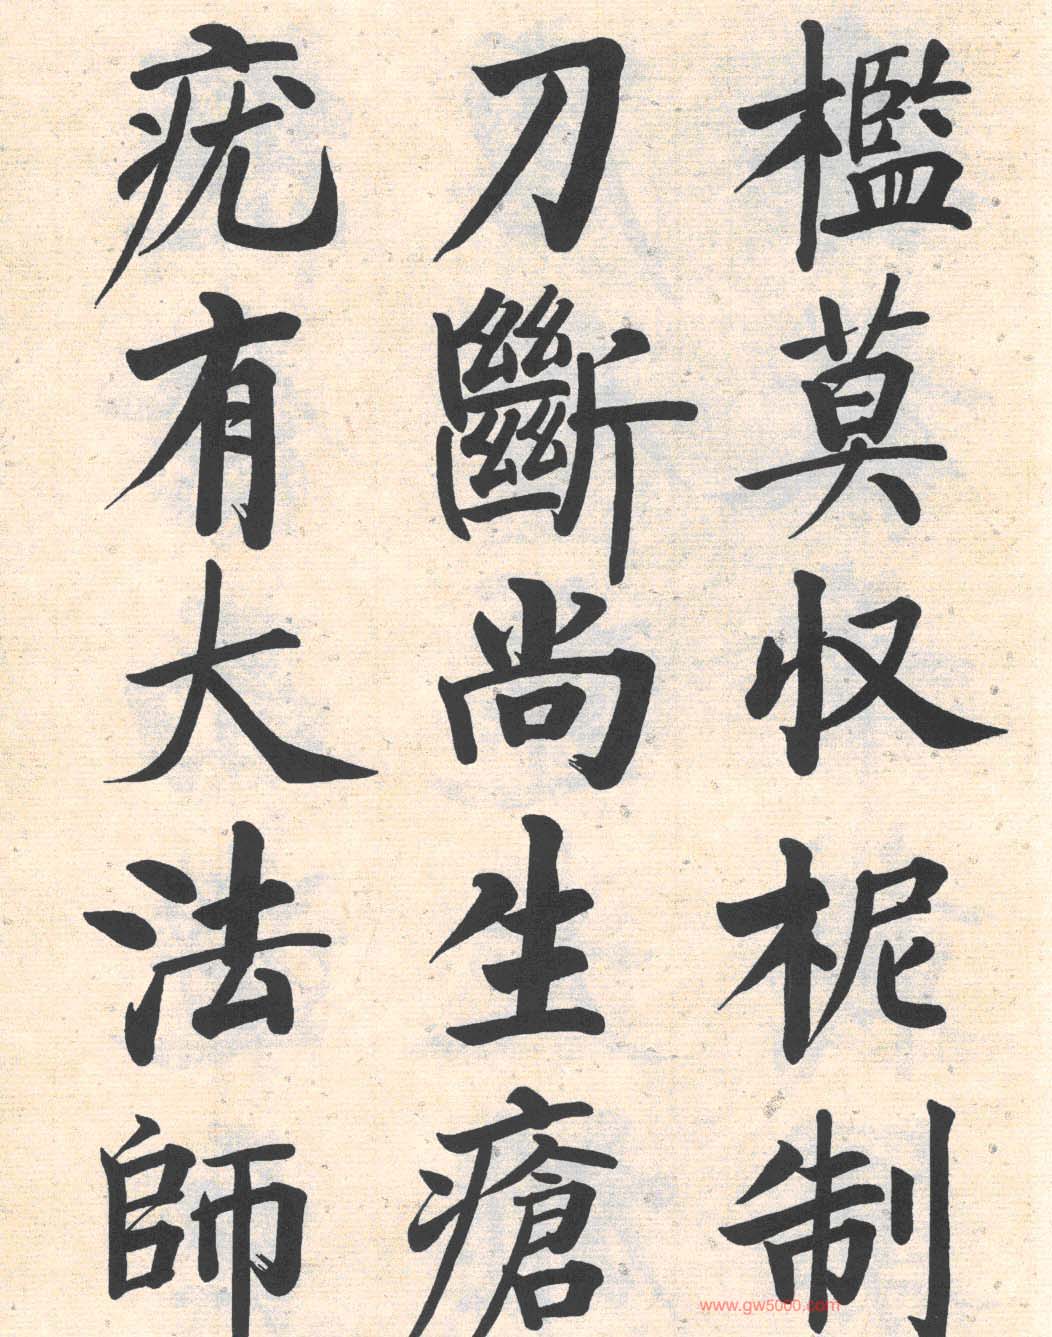 檻莫収柅制
刀斷尚生瘡
疣有大法師
www.gw5000.com